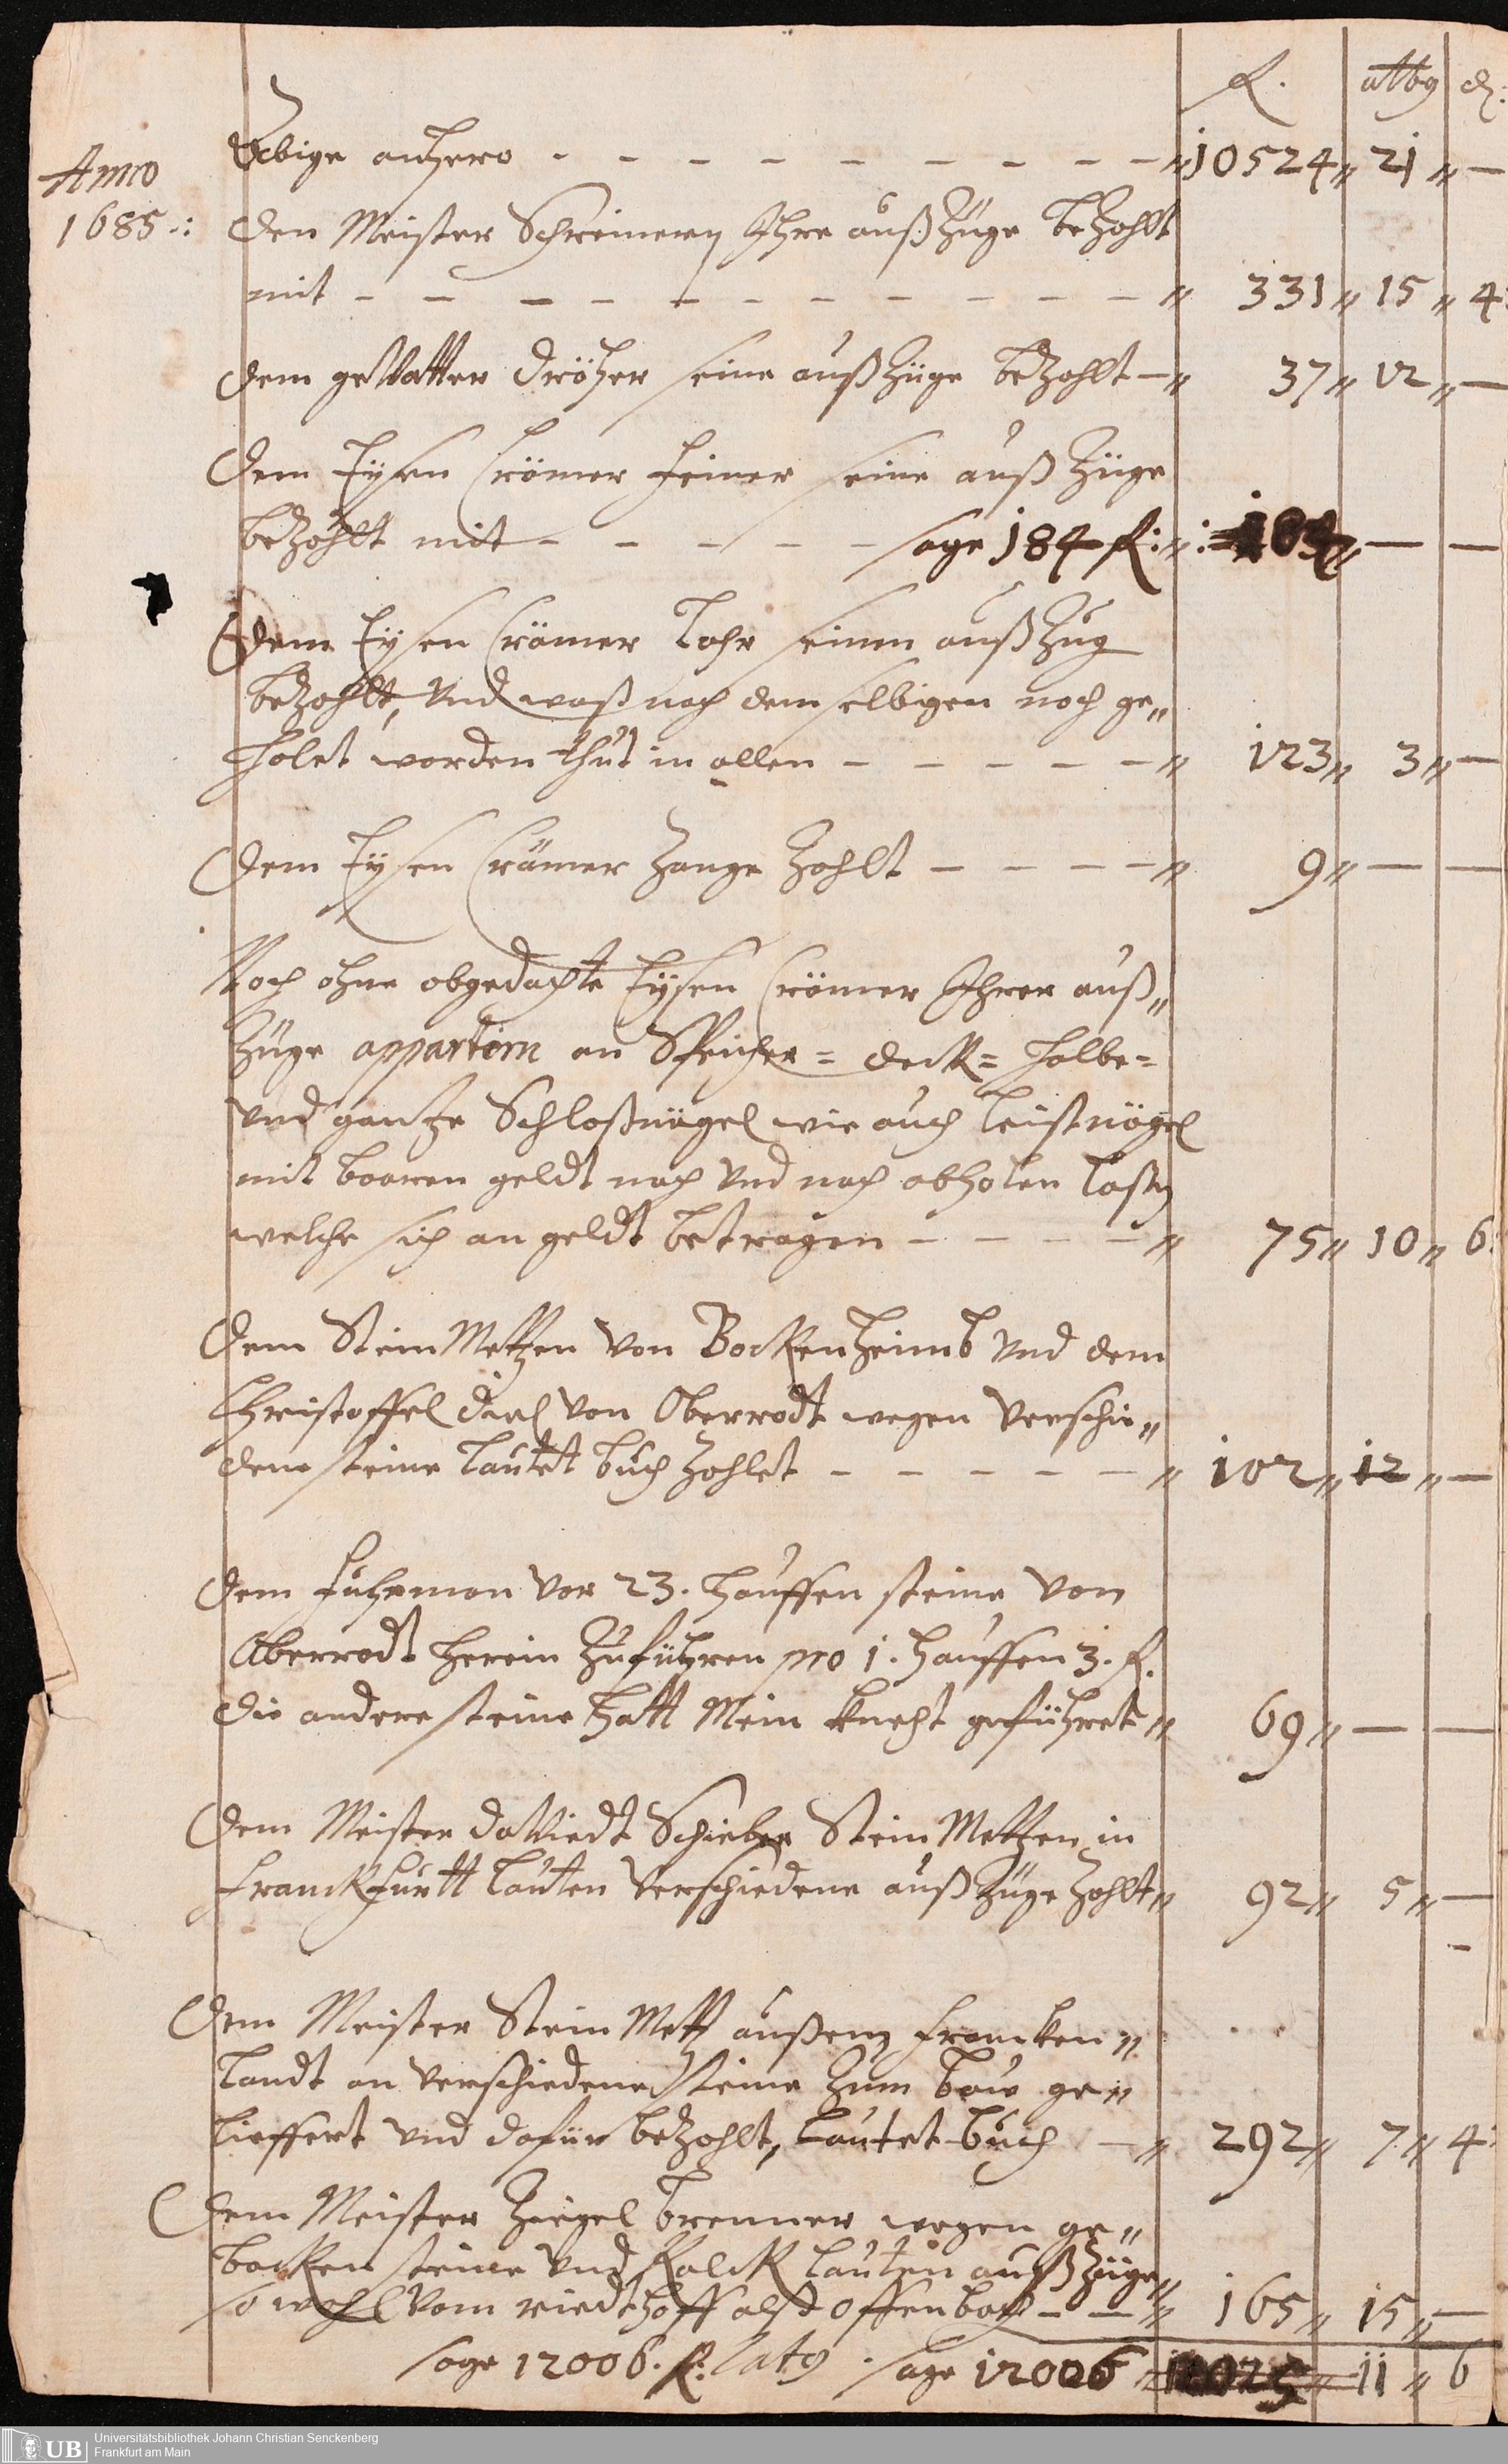 fl. albg d:
Anno
1685.:
Übige anhero - - - - - - - - - " 10524 " 21 " —
Den Meister Schreinern Ihre außzüge bezahlt
mit - - - - - - - - - - - " 331 " 15 " 4
Dem geVatter Dröher seine außzüge bezahlt — " 37 " 12 " —
Dem Eysen Crömer seine auß züge
bezahlt mit - - - - - sage 184 fl: " 184 " — —
Dem Eysen Crämer Lohr seinen außzug
bezahlt, Vnd waß nach dem selbigen noch ge"
holet worden thut in allen - - - - - " 123 " 3 " —
Dem Eysen Crämer Zange Zahlt - - - - " 9 " — —
Noch ohne obgedachte Eysen Crömer Ihrer auß"
züge appartem an Speicher= deck= halbe=
Vnd gantze Schloßnägel wie auch leistnägel
mit baaren geldt nach Vnd nach abholen laßen
welche sich an geldt betragen - - - - " 75 " 10 " 6
Dem Stein Metzen Von Bockenheimb Vnd dem
Christoffel Diel Von Oberrodt wegen Verschie"
dene steine lautet buch Zahlet - - - - - " 102 " 12 " —
Dem fuhrman Vor 23. hauffen steine Von
Oberrodt herein Zuführen pro 1. hauffen 3. fl.
die andere steine hatt Mein knecht geführet " 69 " — —
Dem Meister daViedt Schieber Stein Metzen in
Franckfurtt lauten Verschiedene außzüge Zahlt " 92 " 5 " —
Dem Meister Stein Metz außem Francken"
landt an Verschiedene steine Zum bau ge"
lieffert Vnd dafür bezahlt, lautet buch — " 292 " 7 " 4
Dem Meister Ziegel brenner wegen ge"
backen steine Vnd Kalck lauten außzüge
so wohl Vom riedthoff alß Offenbach - - " 165 " 15 " —
sage 12006. fl. latg . sage 12006 " 11 " 6
UB Universitätsbibliothek Johann Christian Senckenberg
Frankfurt am Main